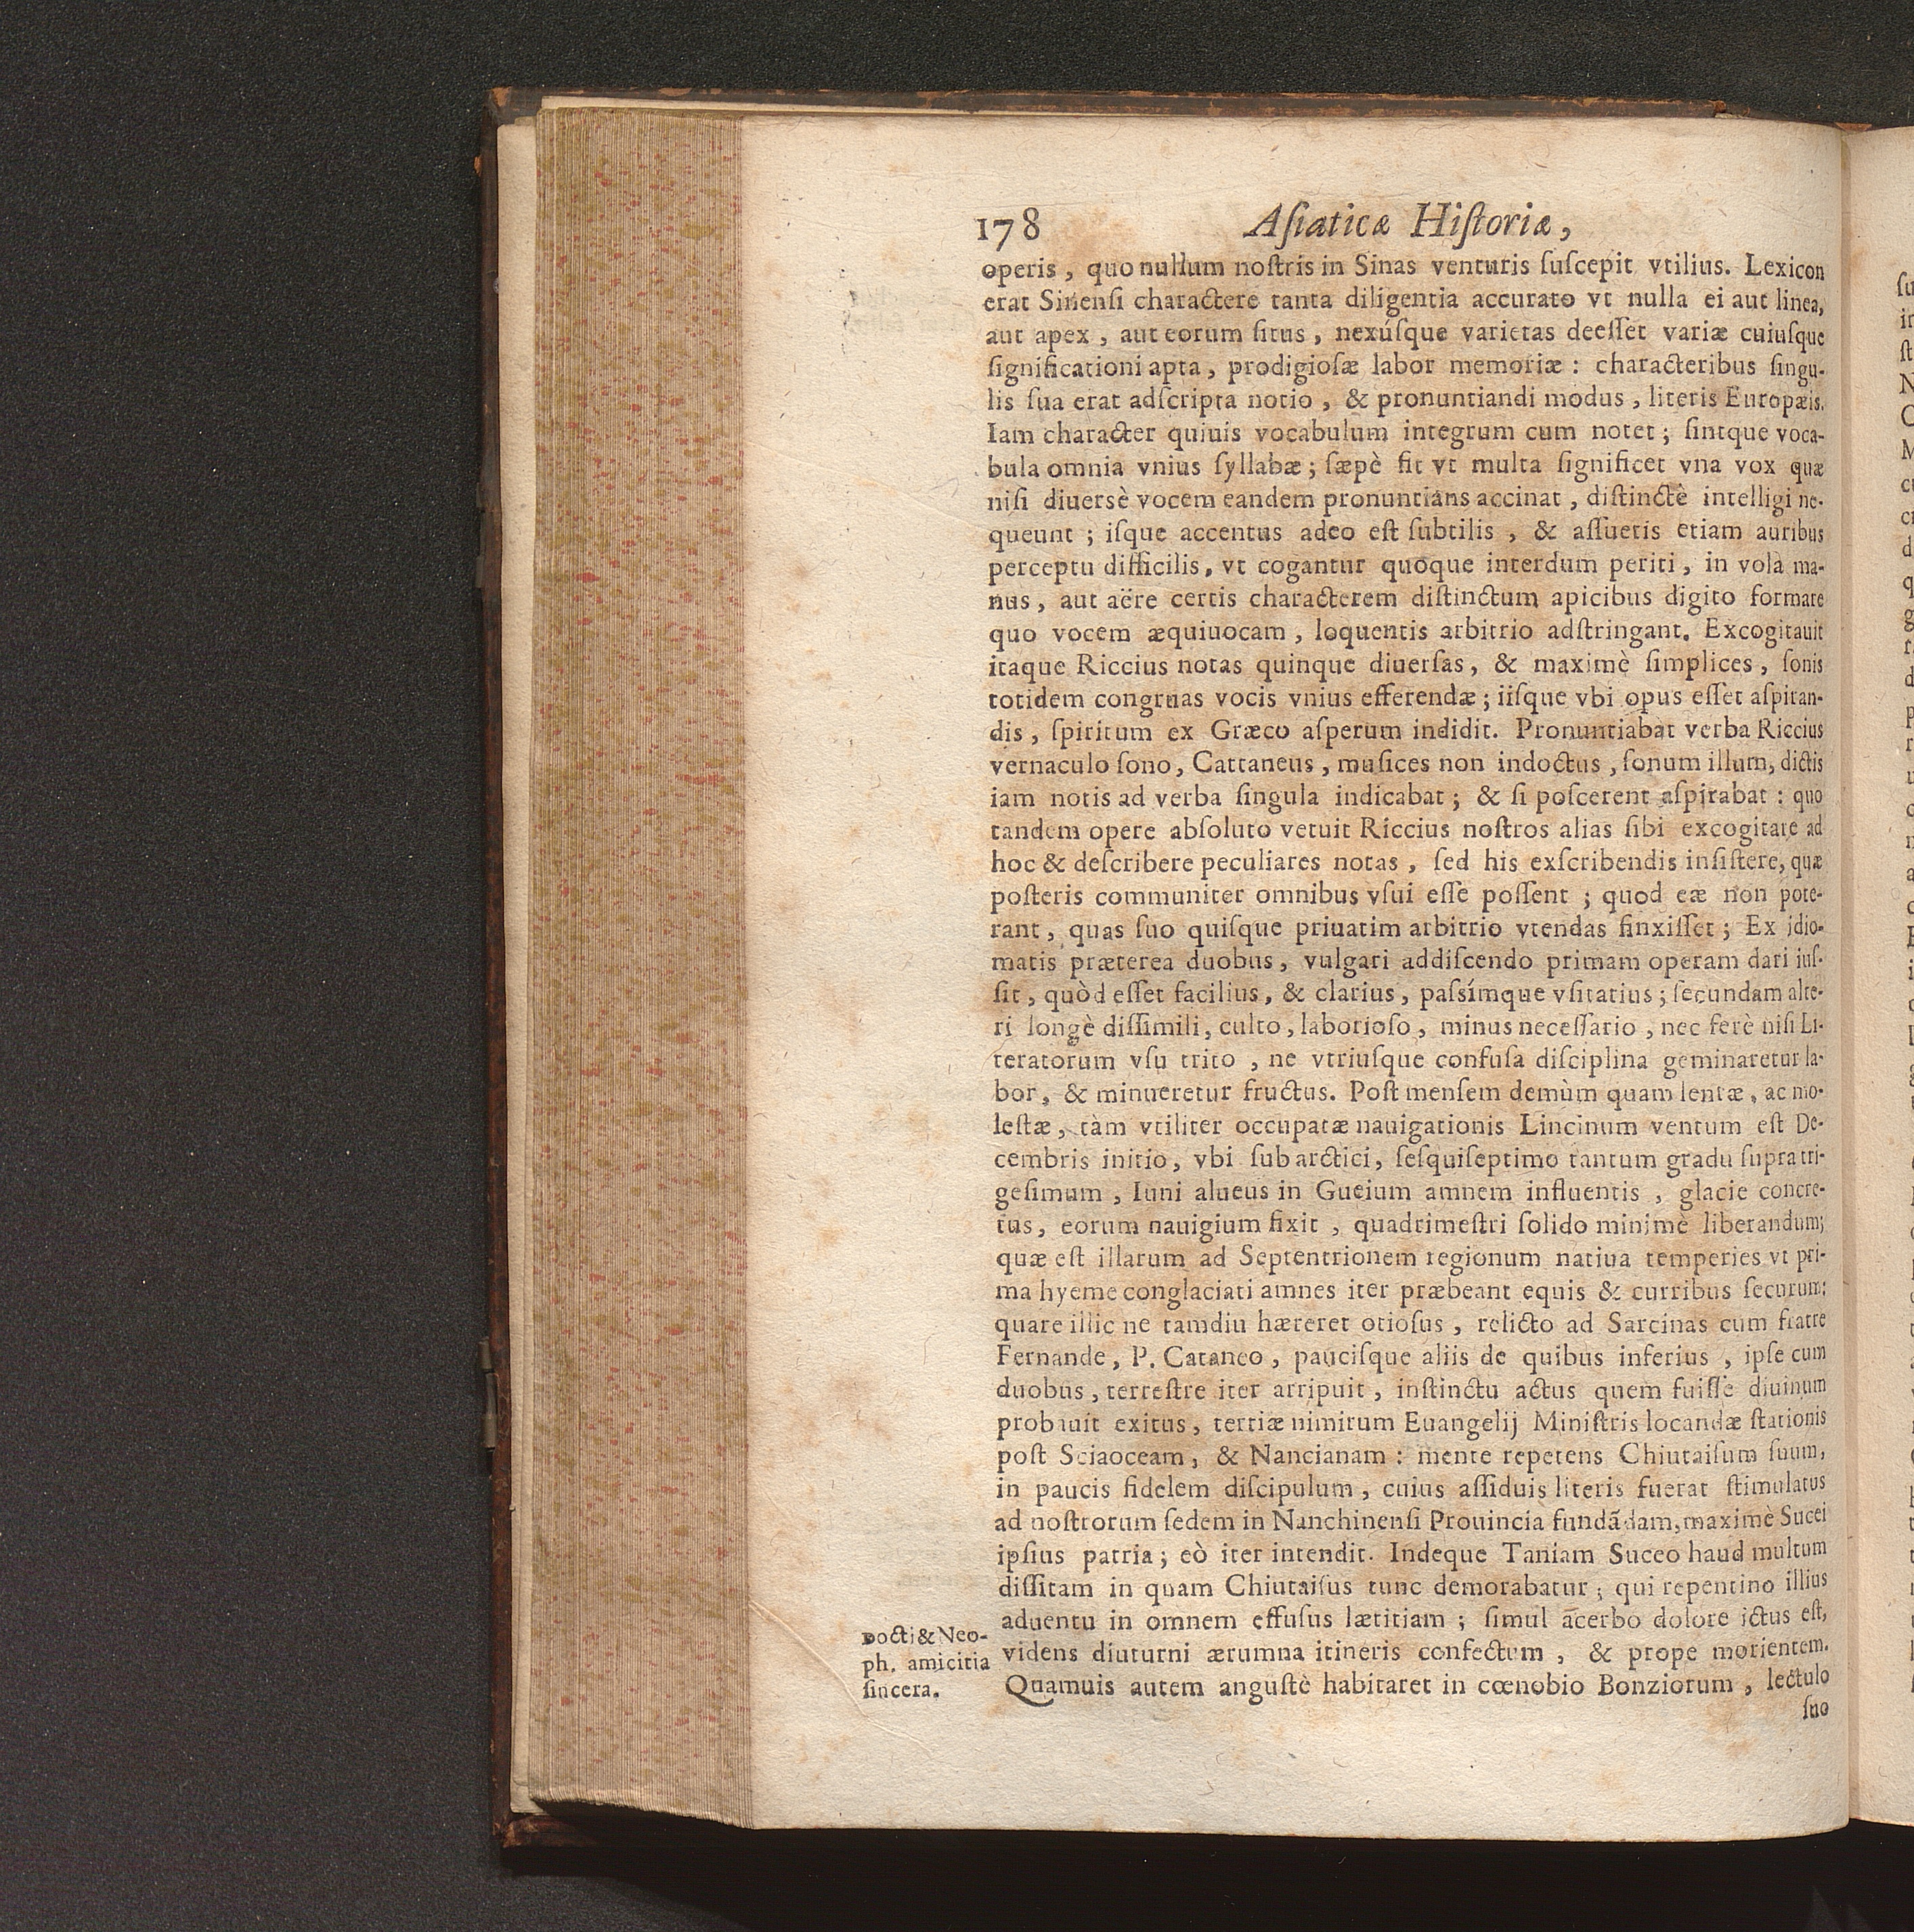 178 Aſiaticæ Hiſtoriæ,
operis, quo nullum noſtris in Sinas venturis ſuſcepit vtilius. Lexicon
erat Sinenſi charactere tanta diligentia accurato vt nulla ei aut linea,
aut apex, aut eorum ſitus, nexúſque varietas deeſſet variæ cuiuſque
ſignificationi apta, prodigioſæ labor memoriæ: characteribus ſingu-
lis ſua erat adſcripta notio, & pronuntiandi modus, literis Europæis.
Iam character quiuis vocabulum integrum cum notet; ſintque voca-
bula omnia vnius ſyllabæ; ſæpè fit vt multa ſignificet vna vox quæ
niſi diuersè vocem eandem pronuntians accinat, diſtinctè intelligi ne-
queunt; iſque accentus adeo eſt ſubtilis, & aſſuetis etiam auribus
perceptu difficilis, vt cogantur quoque interdum periti, in volà ma-
nus, aut aëre certis characterem diſtinctum apicibus digito formare
quo vocem æquiuocam, loquentis arbitrio adſtringant. Excogitauit
itaque Riccius notas quinque diuerſas, & maximè ſimplices, ſonis
totidem congruas vocis vnius efferendæ; iiſque vbi opus eſſet aſpiran-
dis, ſpiritum ex Græco aſperum indidit. Pronuntiabat verba Riccius
vernaculo ſono, Cattaneus, muſices non indoctus, ſonum illum, dictis
iam notis ad verba ſingula indicabat; & ſi poſcerent aſpirabat: quo
tandem opere abſoluto vetuit Riccius noſtros alias ſibi excogitare ad
hoc & deſcribere peculiares notas, ſed his exſcribendis inſiſtere, quæ
poſteris communiter omnibus vſui eſſe poſſent; quod eæ non pote-
rant, quas ſuo quiſque priuatim arbitrio vtendas finxiſſet; Ex idio-
matis præterea duobus, vulgari addiſcendo primam operam dari iuſ-
ſit, quòd eſſet facilius, & clarius, paſsímque vſitatius; ſecundam alte-
ri longè diſſimili, culto, laborioſo, minus neceſſario, nec ferè niſi Li-
teratorum vſu trito, ne vtriuſque confuſa diſciplina geminaretur la-
bor, & minueretur fructus. Poſt menſem demùm quam lentæ, ac mo-
leſtæ, tàm vtiliter occupatæ nauigationis Lincinum ventum eſt De-
cembris initio, vbi ſub arctici, ſeſquiſeptimo tantum gradu ſupra tri-
geſimum, Iuni alueus in Gueium amnem influentis, glacie concre-
tus, eorum nauigium fixit, quadrimeſtri ſolido minimè liberandum;
quæ eſt illarum ad Septentrionem regionum natiua temperies vt pri-
ma hyeme conglaciati amnes iter præbeant equis & curribus ſecurum:
quare illic ne tamdiu hæreret otioſus, relicto ad Sarcinas cum fratre
Fernande, P. Cataneo, pauciſque aliis de quibus inferius, ipſe cum
duobus, terreſtre iter arripuit, inſtinctu actus quem fuiſſe diuinum
probauit exitus, tertiæ nimirum Euangelij Miniſtris locandæ ſtationis
poſt Sciaoceam, & Nancianam: mente repetens Chiutaiſum ſuum,
in paucis fidelem diſcipulum, cuius aſſiduis literis fuerat ſtimulatus
ad noſtrorum ſedem in Nanchinenſi Prouincia fundãdam, maximè Sucei
ipſius patria; eò iter intendit. Indeque Taniam Suceo haud multum
diſſitam in quam Chiutaiſus tunc demorabatur; qui repentino illius
aduentu in omnem effuſus lætitiam; ſimul acerbo dolore ictus eſt,
videns diuturni ærumna itineris confectum, & prope morientem.
Quamuis autem anguſtè habitaret in cœnobio Bonziorum, lectulo
ſuo
Docti & Neo-
ph. amicitia
ſincera.